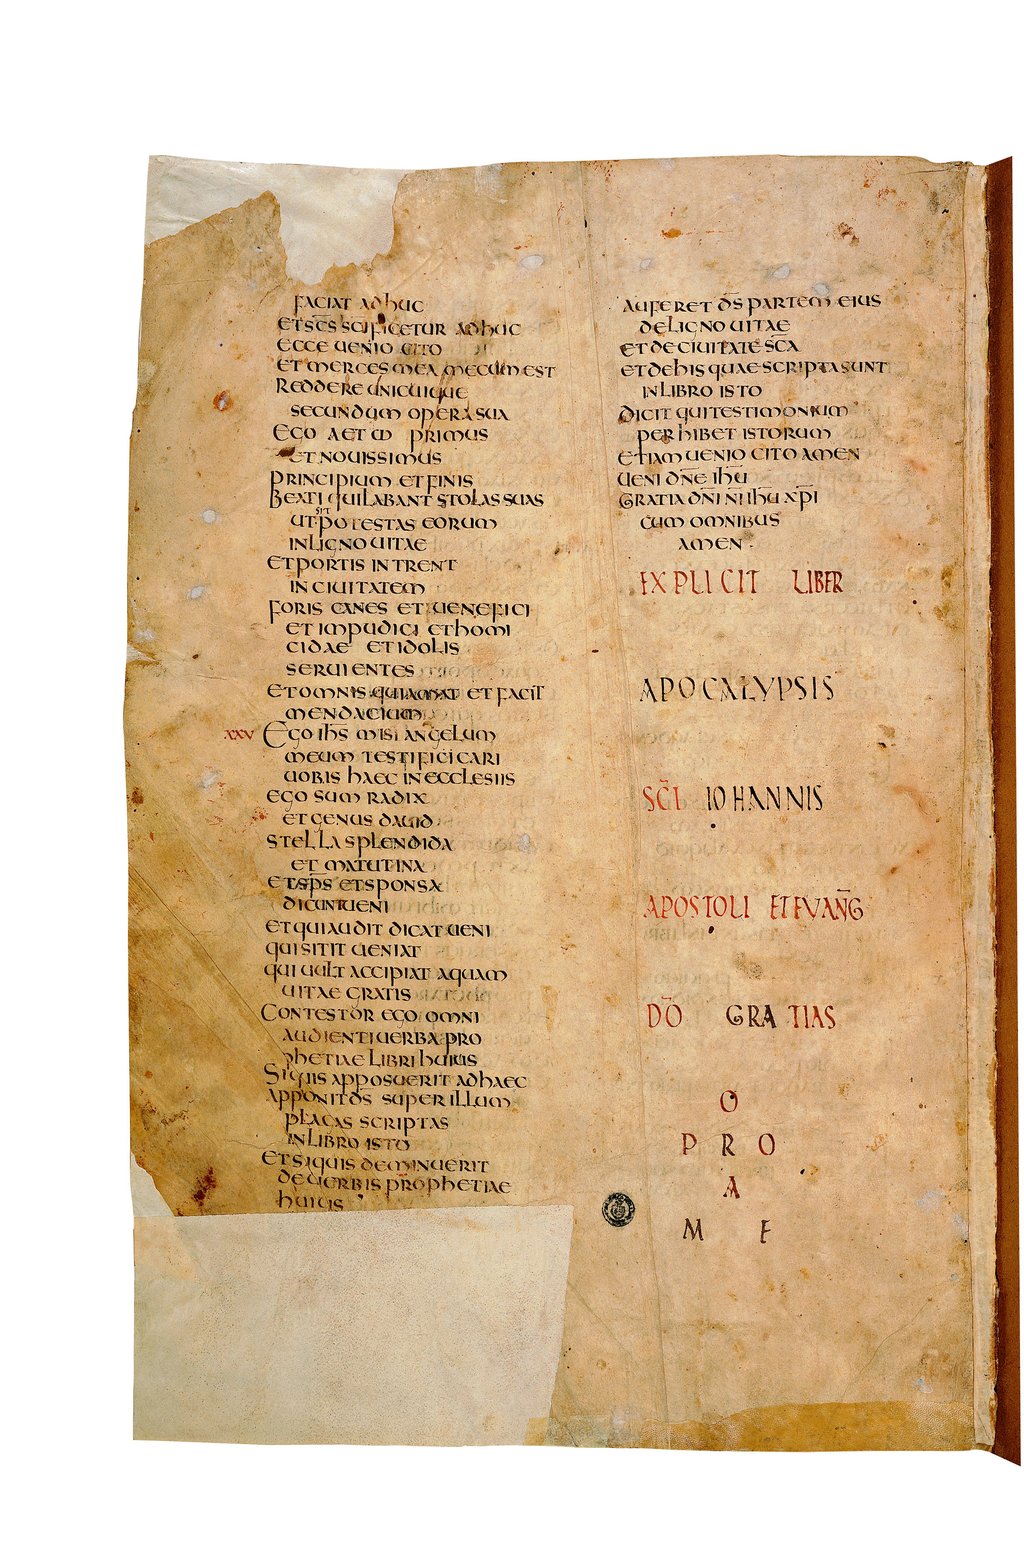 FACIAT ADHUC
ET SC̄S SC̄IFICETUR ADHUC
ECCE UENIO CITO
ET MERCES MEA MECUM EST
REDDERE UNICUIQUE
SECUNDUM OPERA SUA
EGO A ET ω PRIMUS
ET NOUISSIMUS
PRINCIPIUM ET FINIS
BEATI QUI LABANT STOLAS SUAS
UT SIT POTESTAS EORUM
IN LIGNO UITAE
ET PORTIS INTRENT
IN CIUITATEM
FORIS CANES ET UENEFICI
ET IMPUDICI ET HOMI
CIDAE ET IDOLIS
SERUIENTES
ET OMNIS QUI AMAT ET FACIT
MENDACIUM
XXV EGO IHS̄ MISI ANGELUM
MEUM TESTIFICICARI
UOBIS HAEC IN ECCLESIIS
EGO SUM RADIX
ET GENUS DAUID
STELLA SPLENDIDA
ET MATUTINA
ET SP̄S ET SPONSA
DICUNT UENI
ET QUI AUDIT DICAT UENI
QUI SITIT UENIAT
QUI UULT ACCIPIAT AQUAM
UITAE GRATIS
CONTESTOR EGO OMNI
AUDIENTI UERBA PRO
PHETIAE LIBRI HUIUS
SI QUIS APPOSUERIT AD HAEC
APPONIT DS̄ SUPER ILLUM
PLAGAS SCRIPTAS
IN LIBRO ISTO
ET SI QUIS DEMINUERIT
DE UERBIS PROPHETIAE
HUIUS
AUFERET DS̄ PARTEM EIUS
DE LIGNO UITAE
ET DE CIUITATE SC̄A
ET DE HIS QUAE SCRIPTA SUNT
IN LIBRO ISTO
DICIT QUI TESTIMONIUM
PERHIBET ISTORUM
ETIAM UENIO CITO AMEN
UENI DN̄E IHŪ
GRATIA DN̄I N̄I IHŪ XP̄I
CUM OMNIBUS
AMEN·
EXPLICIT LIBER
APOCALYPSIS
SC̄I IOHANNIS
APOSTOLI ET EUANḠ
DŌ GRATIAS
O
P R O
A
M E